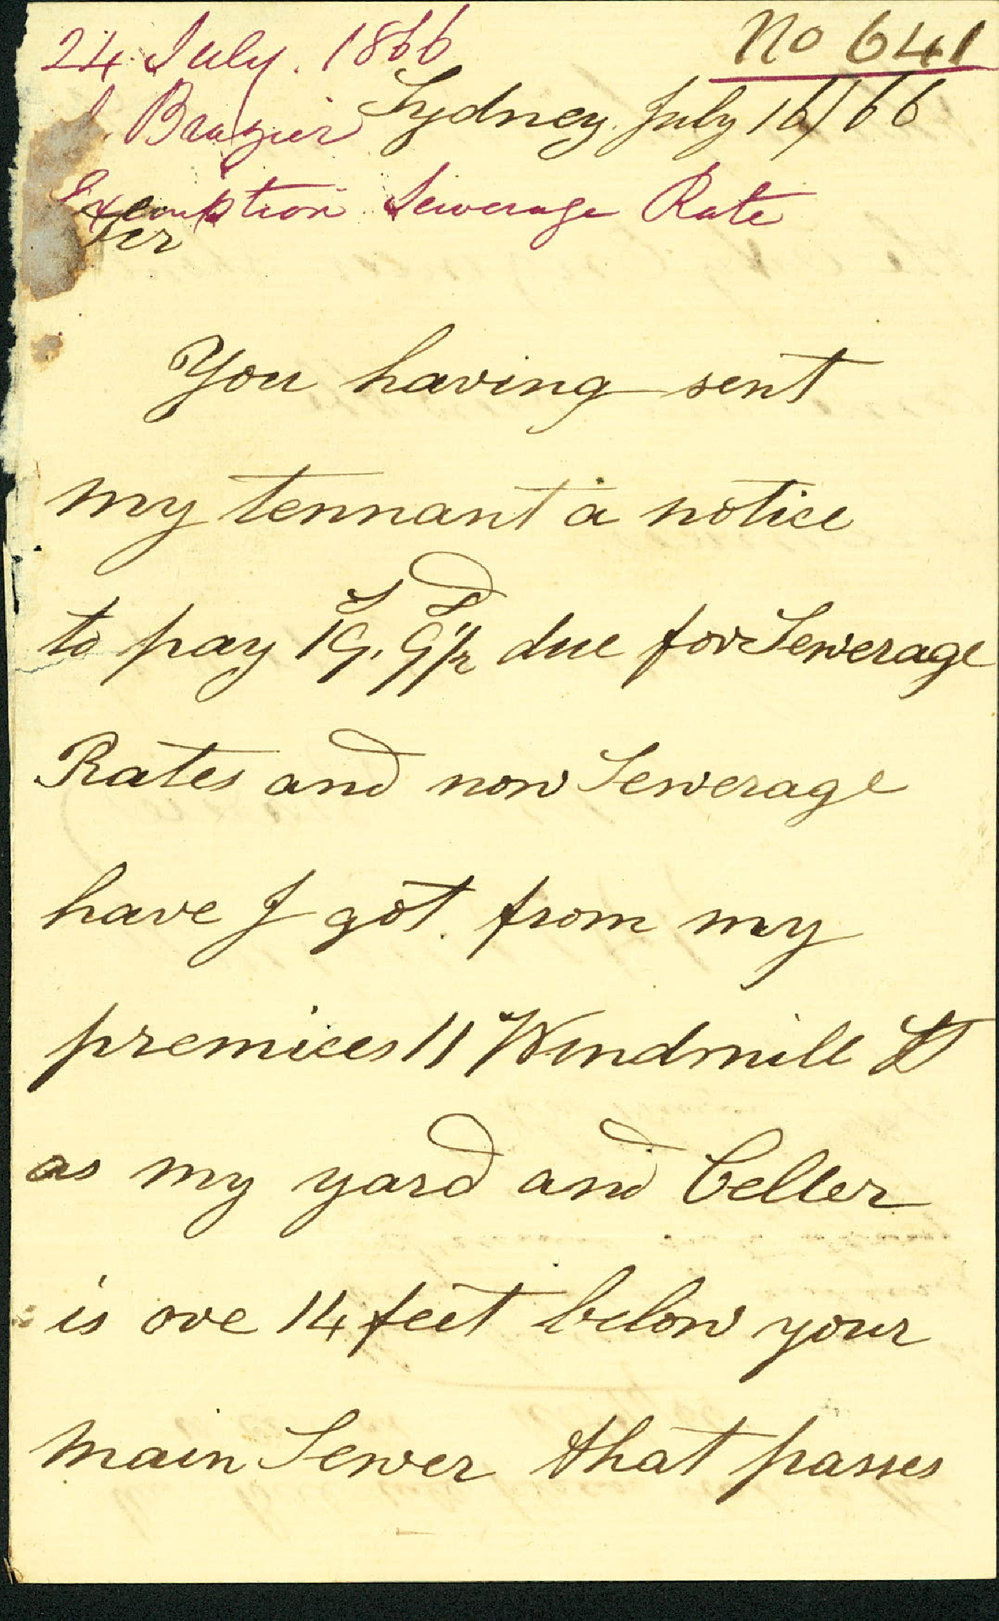 No 641
24 July. 1866
J. Brazier
Sydney July 16/66
Exemption Sewerage Rate
You having sent
my tennant a notice
to pay 19s. 9½d due for Sewerage
Rates and now Sewerage
have I got. from my
premices 11 Windmill St
as my yard and Celler
is ove 14 feet below your
main Sewer that passes